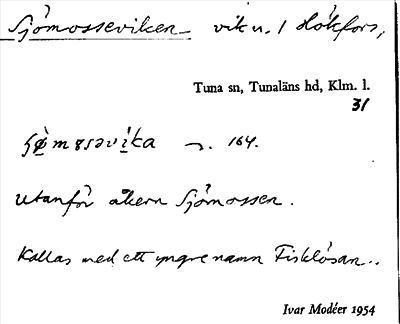 Sjömosseviken vik u. / Hökfors,
Tuna sn, Tunaläns hd, Klm. l.
31
164.
utanför åkern Sjömossen.
Kallas med ett yngre namn Fisklösan..
Ivar Modéer 1954